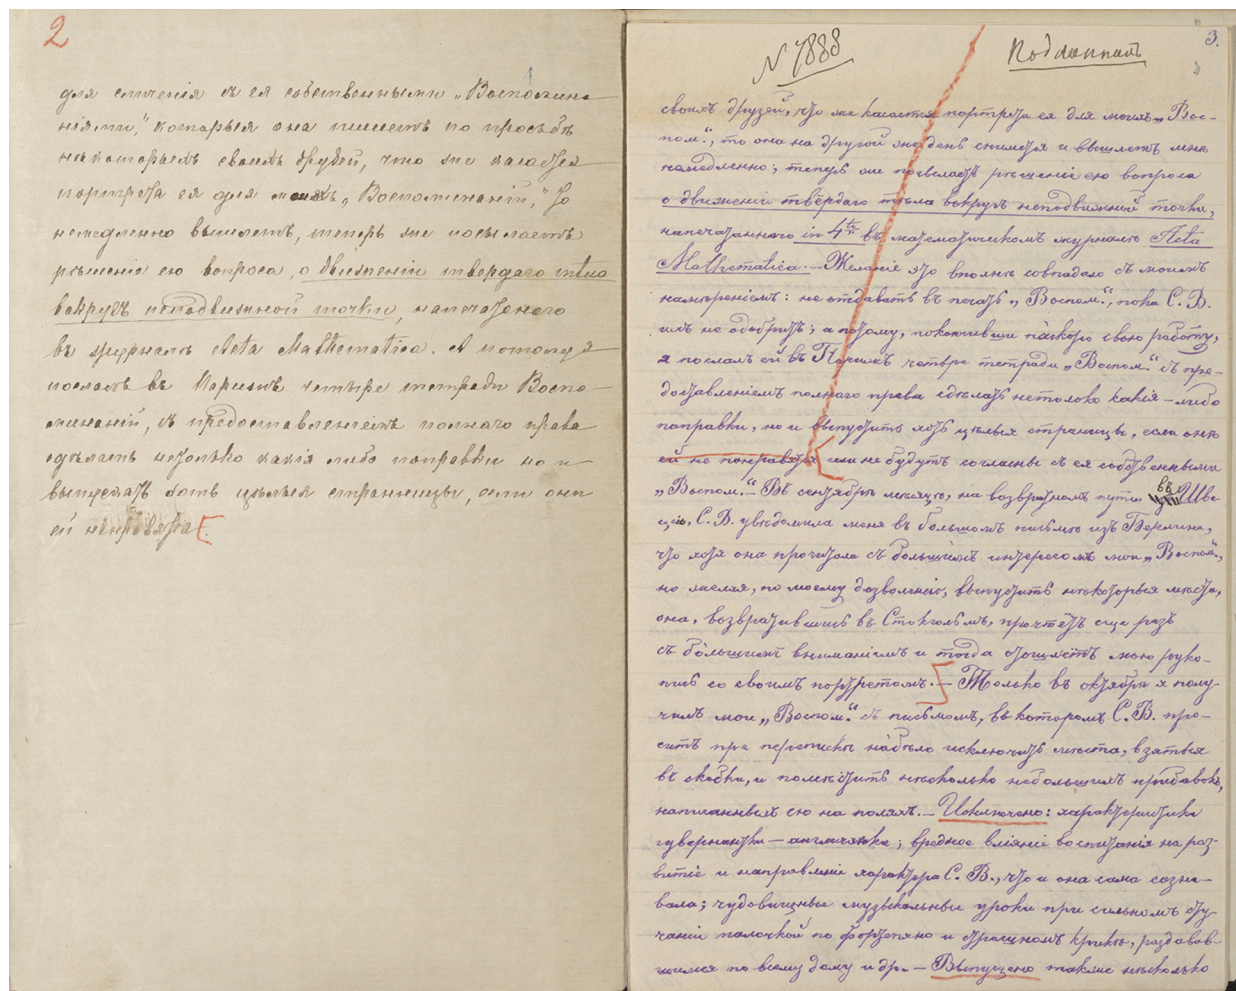 2
для сличенія съ ея собственными „Воспомина
ніями," которыя она пишетъ по просьбѣ
нѣкоторыхъ своихъ друзей, что же касается
портрета ея для моихъ „Воспоминаній," то
немедленно вышлетъ, теперь же посылаетъ
рѣшеніе ею вопроса, о движеніи твердаго тѣла
вокругъ неподвижной точки, напечатаннаго
въ журналѣ Acta Mathematica. А потому я
послалъ въ Парижъ четыре тетради Воспо-
минаній, съ предоставленіемъ полнаго права
сдѣлать не только какія либо поправки но и
выпускать хоть цѣлыя страницы, если они
ей ненравятся.
N 7888
Подлинникъ
3.
своихъ друзей, что же касается портрета ея для моихъ „Вос-
пом.", то она на другой же день снимется и вышлетъ мнѣ
немедленно; теперь же посылаетъ рѣшеніе ею вопроса
о движеніи твёрдаго тѣла вокругъ неподвижной точки,
напечатаннаго in 4to въ математическомъ журналѣ Acta
Mathematica. – Желаніе это вполнѣ совпадало съ моимъ
намѣреніемъ: не отдавать въ печать „Воспом.", пока С. В.
ихъ не одобритъ; а потому, покончивши наскоро свою работу,
я послалъ ей въ Парижъ четыре тетради „Воспом." съ пре-
доставленіемъ полнаго права сдѣлать нетолько какія-либо
поправки, но и выпустить хоть цѣлыя страницы, если онѣ
ей не понравятся или не будутъ согласны съ ея собственными
„Воспом." – Въ сентябрѣ мѣсяцѣ, на возвратномъ пути въ Шве-
цію, С. В. увѣдомила меня въ большомъ письмѣ изъ Берлина,
что хотя она прочитала съ большимъ интересомъ мои „Воспом.",
но желая, по моему дозволенію, выпустить нѣкоторыя мѣста,
она, возвратившись въ Стокгольмъ, прочтётъ еще разъ
съ бо́льшимъ вниманіемъ и тогда отошлётъ мою руко-
пись со своимъ портретомъ. – Только въ октябрѣ я полу-
чилъ мои „Воспом." съ письмомъ, въ которомъ С. В. про-
ситъ при перепискѣ на́бѣло исключить мѣста, взятыя
въ скобки, и помѣстить нѣсколько небольшихъ прибавокъ,
написанныхъ ею на поляхъ. – Исключено: характеристика
гувернантки – англичанки; вредное вліяніе воспитанія на раз-
витіе и направленіе характера С. В., что и она сама созна-
вала; чудовищные музыкальные уроки при сильномъ сту-
чаніи палочкой по фортепіано и страшномъ крикѣ, раздавав-
шимся по всему дому и др. – Выпущено также нѣсколько